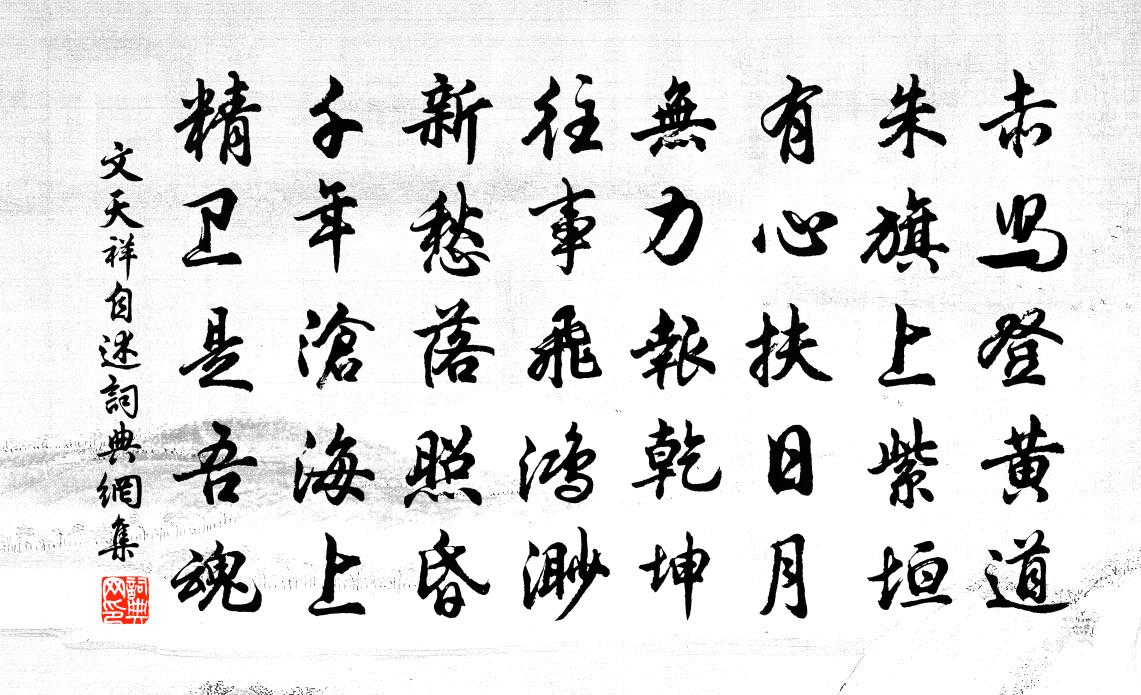 赤舄登黄道
朱旗上紫垣
有心扶日月
無力報乾坤
往事飛鸿渺
新愁落照昏
千年滄海上
精卫是吾魂
文天祥自述詞典網集
詞典网印